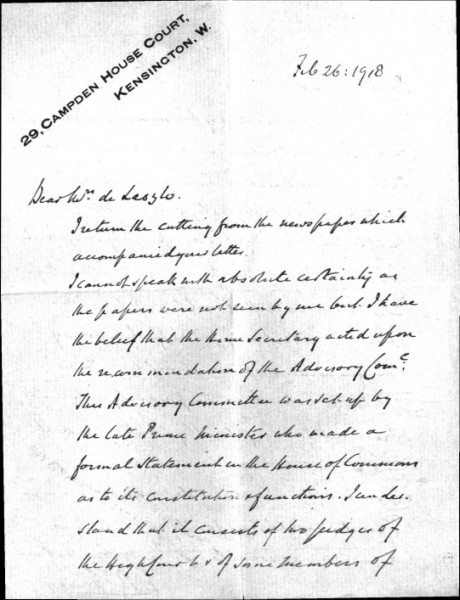 29, CAMPDEN HOUSE COURT,
KENSINGTON, W.
Feb 26: 1918
Dear Mrs de Laszlo.
I return the cutting from the newspaper which
accompanied your letter.
I cannot speak with absolute certainty as
the papers were not seen by me but I have
the belief that the Home Secretary acted upon
the recommendation of the Advisory Comee.
This Advisory Committee was set up by
the late Prime Minister who made a
formal statement in the House of Commons
as to its constitution & functions. I under-
stand that it consists of two judges of
the High Court & of some members of